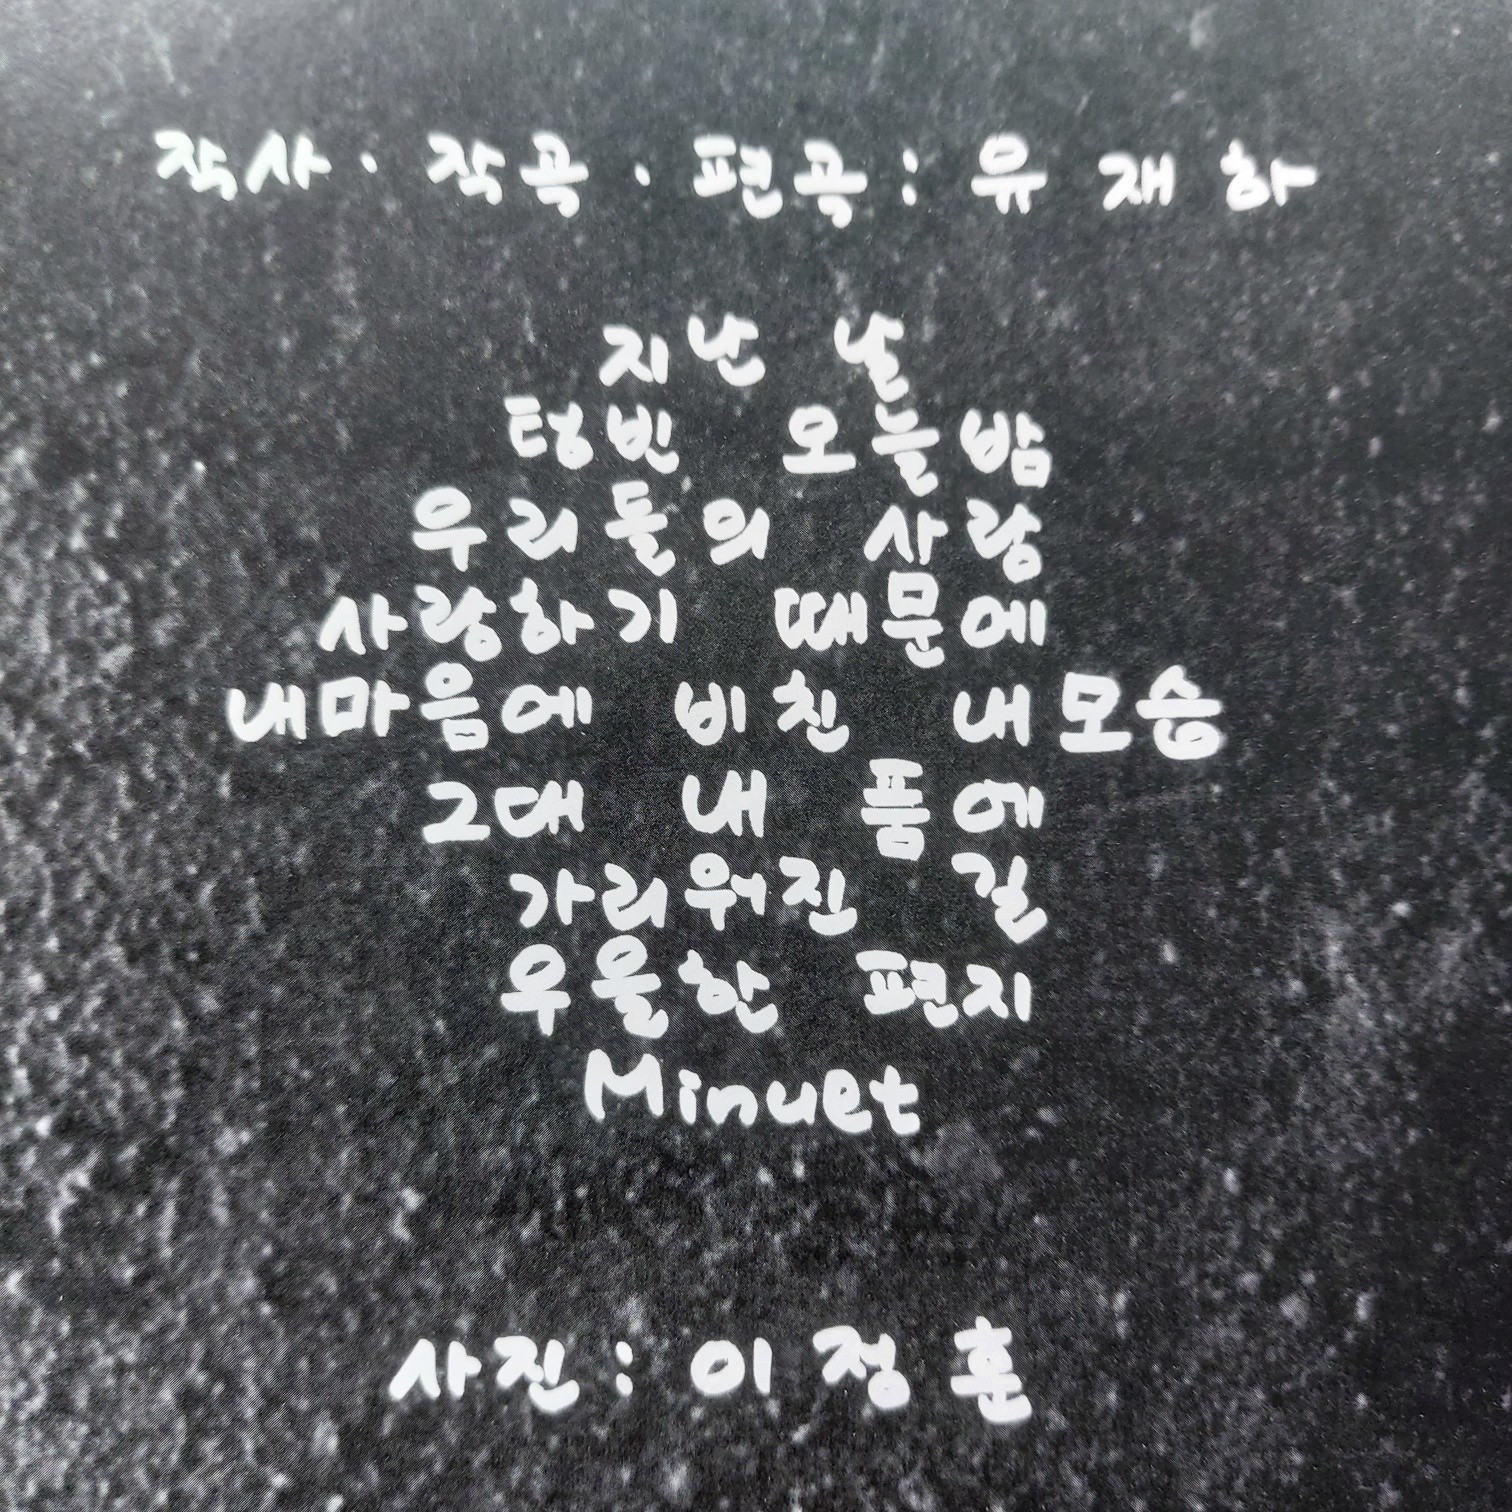 작사·작곡·편곡:유재하
지난 날
텅빈 오늘밤
우리들의 사랑
사랑하기 때문에
내마음에 비친 내모습
그대 내 품에
가리워진 길
우울한 편지
Minuet
사진:이정훈